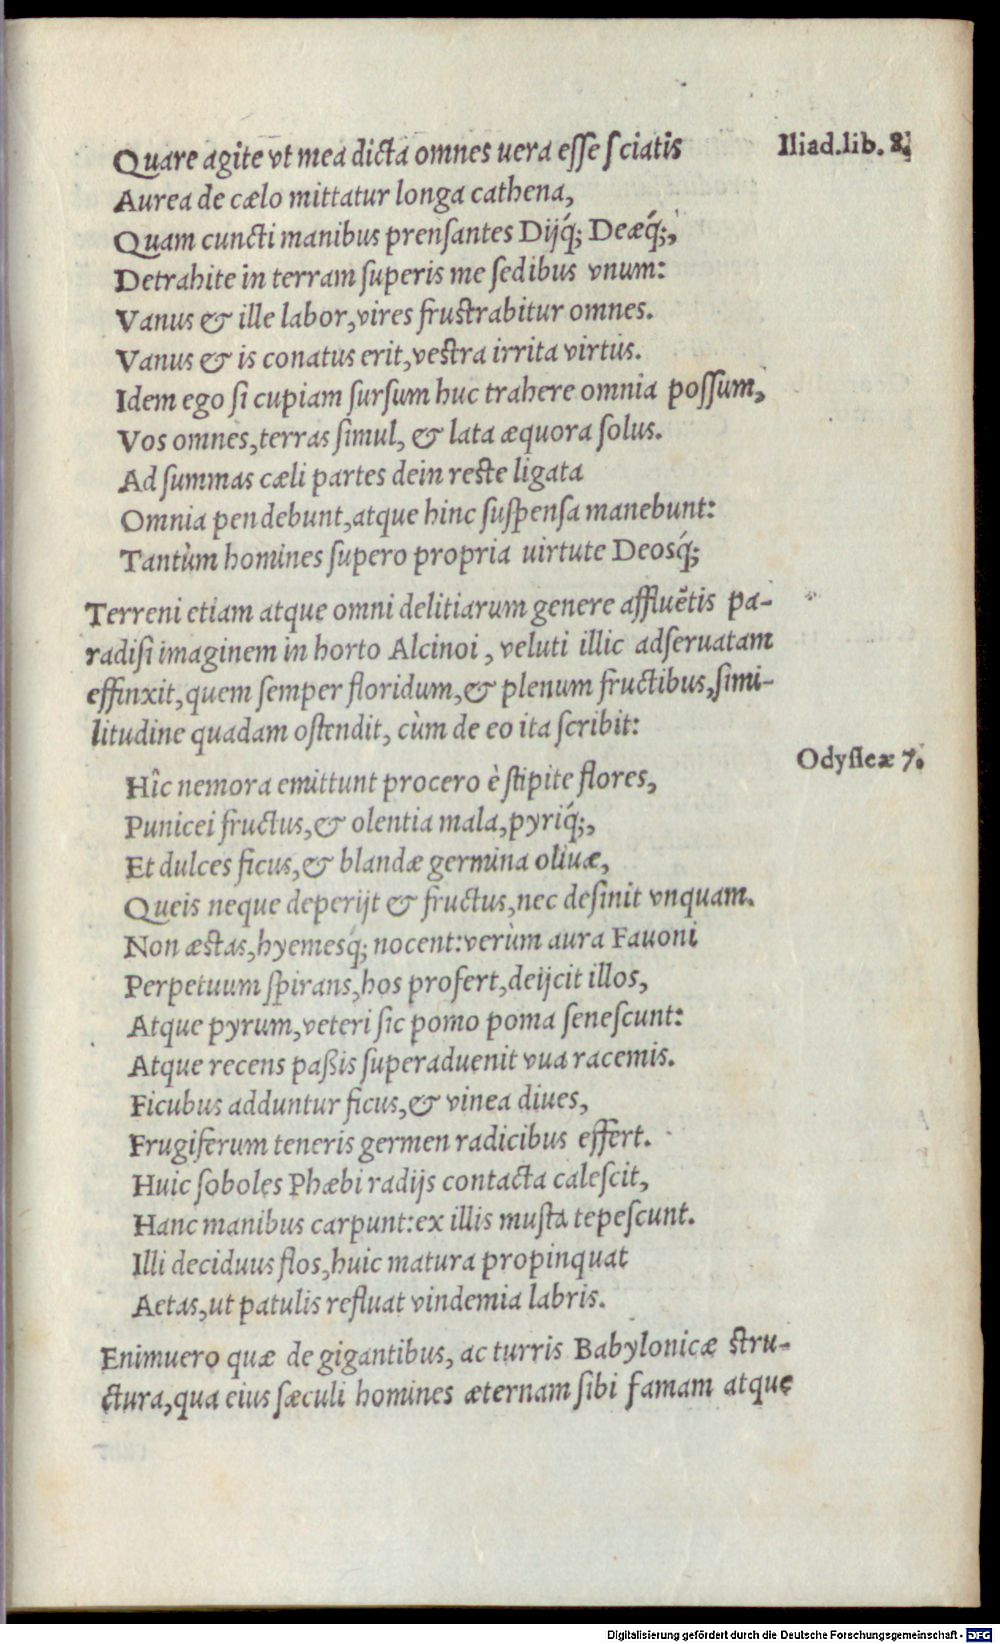 Quare agite vt mea dicta omnes uera esse sciatis
Iliad.lib. 8.
Aurea de cælo mittatur longa cathena,
Quam cuncti manibus prensantes Dijq́; Deæq́;,
Detrahite in terram superis me sedibus vnum:
Vanus & ille labor, vires frustrabitur omnes.
Vanus & is conatus erit, vestra irrita virtus.
Idem ego si cupiam sursum huc trahere omnia possum,
Vos omnes, terras simul, & lata æquora solus.
Ad summas cæli partes dein reste ligata
Omnia pendebunt, atque hinc suspensa manebunt:
Tantùm homines supero propria uirtute Deosq́;
Terreni etiam atque omni delitiarum genere affluẽtis pa-
radisi imaginem in horto Alcinoi, veluti illic adseruatam
effinxit, quem semper floridum, & plenum fructibus, simi-
litudine quadam ostendit, cùm de eo ita scribit:
Odysleæ 7.
Hîc nemora emittunt procero è stipite flores,
Punicei fructus, & olentia mala, pyriq́;,
Et dulces ficus, & blandæ germina oliuæ,
Queis neque deperijt & fructus, nec desinit vnquam.
Non æstas, hyemesq́; nocent: verùm aura Fauoni
Perpetuum spirans, hos profert, deijcit illos,
Atque pyrum, veteri sic pomo poma senescunt:
Atque recens paßis superaduenit vua racemis.
Ficubus adduntur ficus, & vinea diues,
Frugiferum teneris germen radicibus effert.
Huic soboles Phæbi radijs contacta calescit,
Hanc manibus carpunt: ex illis musta tepescunt.
Illi deciduus flos, huic matura propinquat
Aetas, ut patulis refluat vindemia labris.
Enimuero quæ de gigantibus, ac turris Babylonicæ stru-
ctura, qua eius sæculi homines æternam sibi famam atque
Digitalisierung gefördert durch die Deutsche Forschungsgemeinschaft - DFG